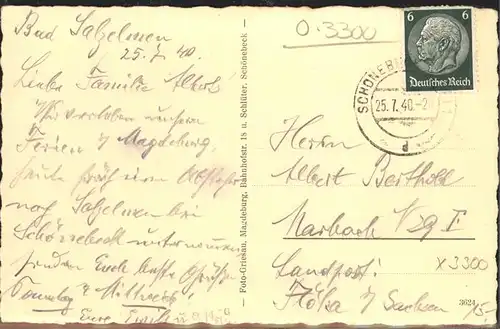 Bad Salzelmen
25.7.40.
Liebe Familie
Wir verleben unsere
Ferien b/ Magdeburg.
Heute
nach Salzelmen bei
Schönebeck unternommen
senden Euch beste Grüße
Sonntag Mittwoch
Eure
Foto-Griesau, Magdeburg, Bahnhofstr. 18 u. Schlüter, Schönebeck
O.3300
6 6
Deutsches Reich
SCHÖNEB
25.7.40.-2
d
Herrn
Albert Berthold
Marbach
Landpost:
Flöha i/ Sachsen
X 3300
3624
15-